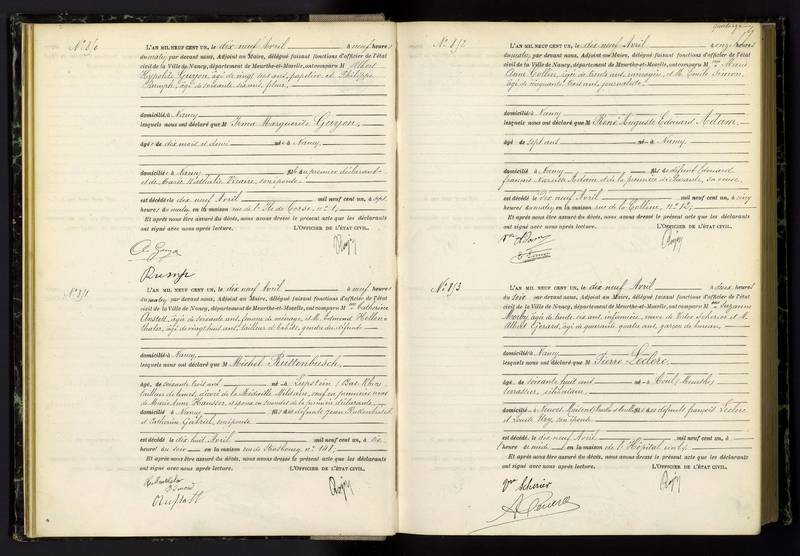 N° 810
L'AN MIL NEUF CENT UN, le dix neuf Avril à neuf heures
du matin, par devant nous, Adjoint au Maire, délégué faisant fonctions d'officier de l'état
civil de la Ville de Nancy, département de Meurthe-et-Moselle, ont comparu M Albert
Hypolite Guyon, âgé de vingt sept ans, papetier et Philippe
Rumpf, âgé de soixante six ans,
domiciliés à Nancy
lesquels nous ont déclaré que M Irma Marguerite Guyon,
âgée de dix mois et demi née à Nancy,
domiciliée à Nancy fille du premier déclarant
et de Marie Nathalie Vicaire, son épouse
est décédée le dix neuf Avril mil neuf cent un, à sept
heures du matin, en la maison rue de l'Ile de Corse, n° 1,
Et après nous être assuré du décès, nous avons dressé le présent acte que les déclarants
ont signé avec nous après lecture. L'OFFICIER DE L'ÉTAT CIVIL,
Rumpf
N° 811
L'AN MIL NEUF CENT UN, le dix neuf Avril à neuf heures
du matin, par devant nous, Adjoint au Maire, délégué faisant fonctions d'officier de l'état
civil de la Ville de Nancy, département de Meurthe-et-Moselle, ont comparu M Catherine
Anstett, âgée de soixante ans, femme de ménage, et M. Edmond Hellen-
thaler, âgé de vingt huit ans, tailleur d'habits, gendre du défunt
domiciliés à Nancy
lesquels nous ont déclaré que M Michel Ruttenbusch,
âgé de soixante trois ans né à Lupstein (Bas-Rhin)
tailleur de limes, décoré de la Médaille Militaire, veuf en premières noces
de Marie Anne Hausser, et époux en secondes de la première déclarante,
domicilié à Nancy fils des défunts Jean Ruttenbusch
et Catherine Gabriel, son épouse
est décédé le dix huit Avril mil neuf cent un, à six
heures du soir en la maison rue de Strasbourg, n° 148,
Et après nous être assuré du décès, nous avons dressé le présent acte que les déclarants
ont signé avec nous après lecture. L'OFFICIER DE L'ÉTAT CIVIL,
N° 812
L'AN MIL NEUF CENT UN, le dix neuf Avril à onze heures
du matin, par devant nous, Adjoint au Maire, délégué faisant fonctions d'officier de l'état
civil de la Ville de Nancy, département de Meurthe-et-Moselle, ont comparu M Marie
Anne Collin, âgée de trente ans, ménagère, et M. Emile Simon,
âgé de cinquante trois ans, journaliste,
domiciliés à Nancy
lesquels nous ont déclaré que M René Auguste Edouard Adam,
âgé de sept ans né à Nancy,
domicilié à Nancy fils de défunt Edouard
François Narcisse Adam, et de la première déclarante, sa veuve,
est décédé le dix neuf Avril mil neuf cent un, à cinq
heures du matin, en la maison rue de la Colline, n° 12,
Et après nous être assuré du décès, nous avons dressé le présent acte que les déclarants
ont signé avec nous après lecture. L'OFFICIER DE L'ÉTAT CIVIL,
Vve Adam
N° 813
L'AN MIL NEUF CENT UN, le dix neuf Avril à trois heures
du soir par devant nous, Adjoint au Maire, délégué faisant fonctions d'officier de l'état
civil de la Ville de Nancy, département de Meurthe-et-Moselle, ont comparu M Suzanne
âgée de trente six ans, infirmière, veuve de Victor Scherier et M.
Albert âgé de quarante quatre ans, garçon de bureau
domiciliés à Nancy
lesquels nous ont déclaré que M Pierre Leclerc,
âgé de soixante huit ans né à Toul (Meurthe)
terrassier, célibataire,
domicilié à Neuves Maisons (Meurthe et Moselle) fils des défunts François Leclerc
et Louise son épouse
est décédé le dix neuf Avril mil neuf cent un, à
heure de midi en la maison de l'Hôpital civil,
Et après nous être assuré du décès, nous avons dressé le présent acte que les déclarants
ont signé avec nous après lecture. L'OFFICIER DE L'ÉTAT CIVIL,
Vve Scherier